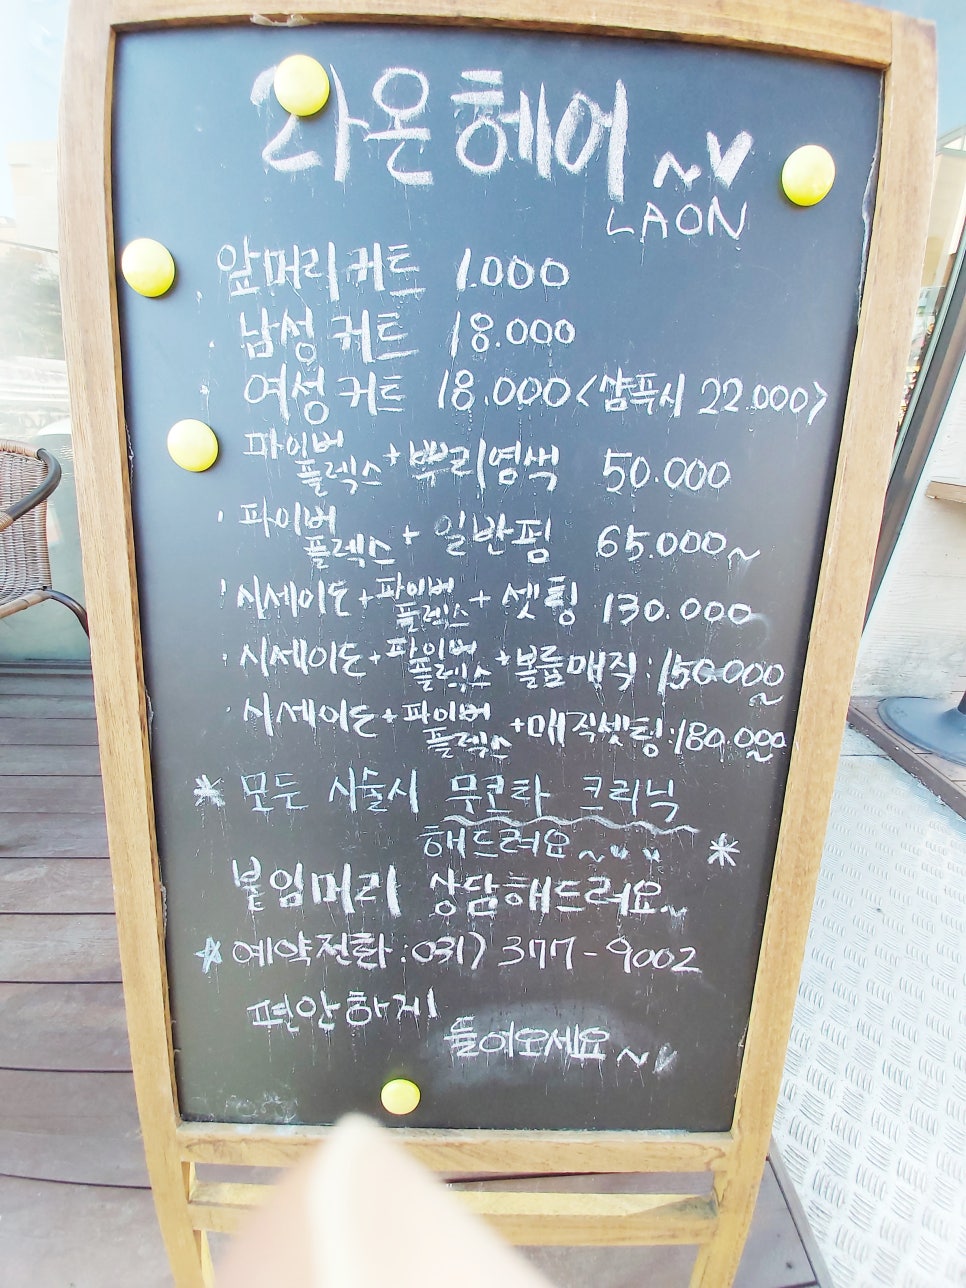 라온헤어~♥
LAON
· 앞머리커트 1.000
· 남성커트 18.000
· 여성커트 18.000<샴푹시 22.000>
파이버플렉스+뿌리염색 50.000
· 파이버플렉스+일반핌 65.000~
· 시세이도+파이버플렉스+셋팅 130.000
· 시세이도+파이버플렉스+볼륨매직:150000~
· 시세이도+파이버플렉스+매직셋팅:180.000~
* 모든 시술시 무코타 크리닉
해드려요~ *
붙임머리 상담해드려요~
☆예약전화:031) 377-9002
편안하게
들어오세요~♥